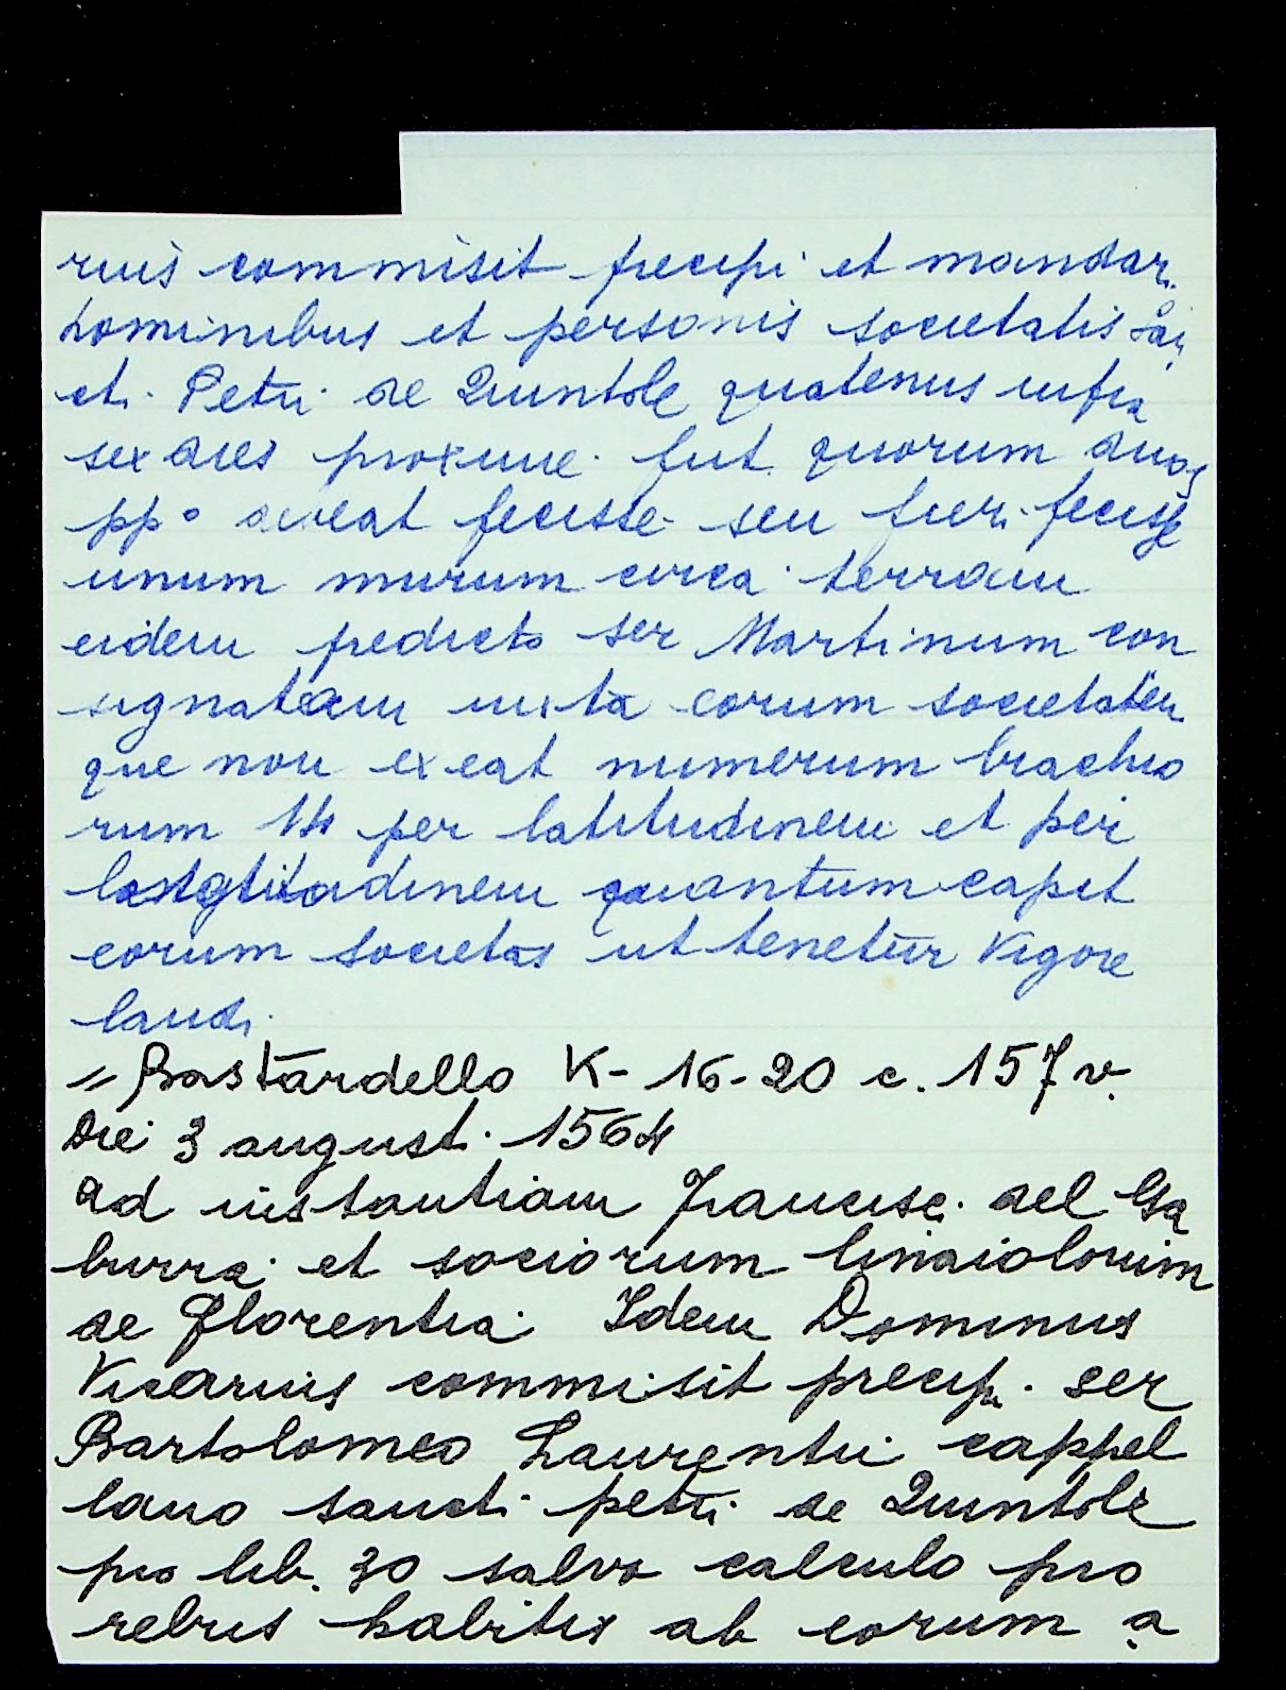 rius commisit precipi et mandari
hominibus et personis societatis San
cti Petri de Quintole quatenus infra
sex dies proxime fut. quorum duos
pp° debeat fecisse seu fieri fecisse
unum murum circa terram
eidem predicto ser Martinum con
signatam iuxta eorum societatem
que non exeat numerum brachio
rum 14 per latitudinem et per
longitudinem quantum capit
eorum societas ut tenetur vigore
laudi.
" Bastardello K- 16-20 c. 157 v.
Die 3 august. 1564
ad instantiam Francisci del Ga
burra et sociorum linaiolorum
de Florentia Idem Dominus
Vicarius commisit precipi ser
Bartolomeo Laurentii cappel
lano sancti petri de Quintole
pro lib. 30 salvo calculo pro
rebus habitis ab eorum a